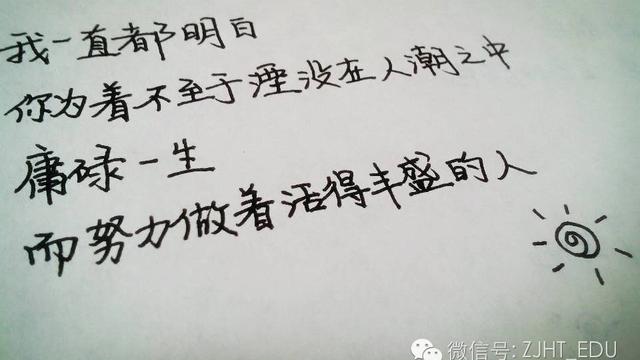 我一直都明白
你为着不至于湮没在人潮之中
庸碌一生
而努力做着活得丰盛的人
微信号: ZJHT_EDU